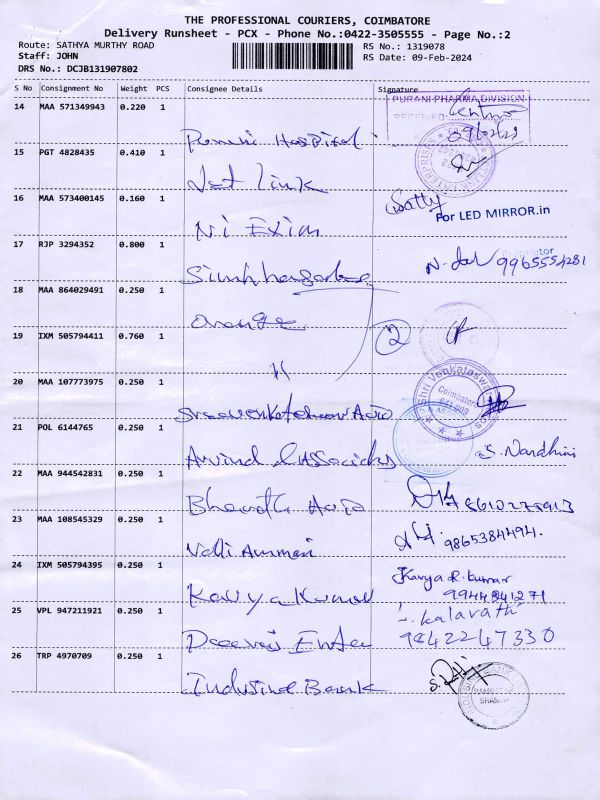 THE PROFESSIONAL COURIERS, COIMBATORE
Delivery Runsheet - PCX - Phone No.:0422-3505555 - Page No.:2
Route: SATHYA MURTHY ROAD RS No.: 1319078
Staff: JOHN RS Date: 09-Feb-2024
DRS No.: DCJB131907802
S No Consignment No Weight PCS Consignee Details Signature
14 MAA 571349943 0.220 1 Hospital PURANI PHARMA DIVISION
RECEIVED
15 PGT 4828435 0.410 1 Link
16 MAA 573400145 0.160 1 Ni Exim Satty
For LED MIRROR.in
17 RJP 3294352 0.800 1
18 MAA 864029491 0.250 1 orange
19 IXM 505794411 0.760 1 " 2
20 MAA 107773975 0.250 1 Shri Venkateswara
Coimbatore
21 POL 6144765 0.250 1 Arvind & Associates S. Nandhini
22 MAA 944542831 0.250 1 Bharath
23 MAA 108545329 0.250 1 Valli Ammai 9865384494.
24 IXM 505794395 0.250 1 Kavya Kumar Kavya R. Kumar
9944841271
25 VPL 947211921 0.250 1 Kalavathi
9842247330
26 TRP 4970709 0.250 1 Indusind Bank
BRANCH